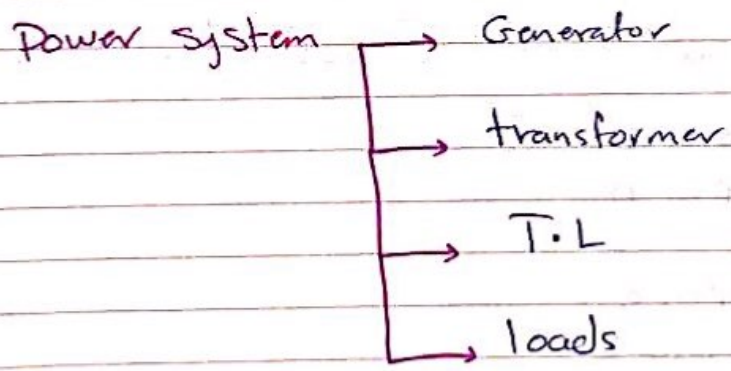 Power system
Generator
transformer
T.L
loads